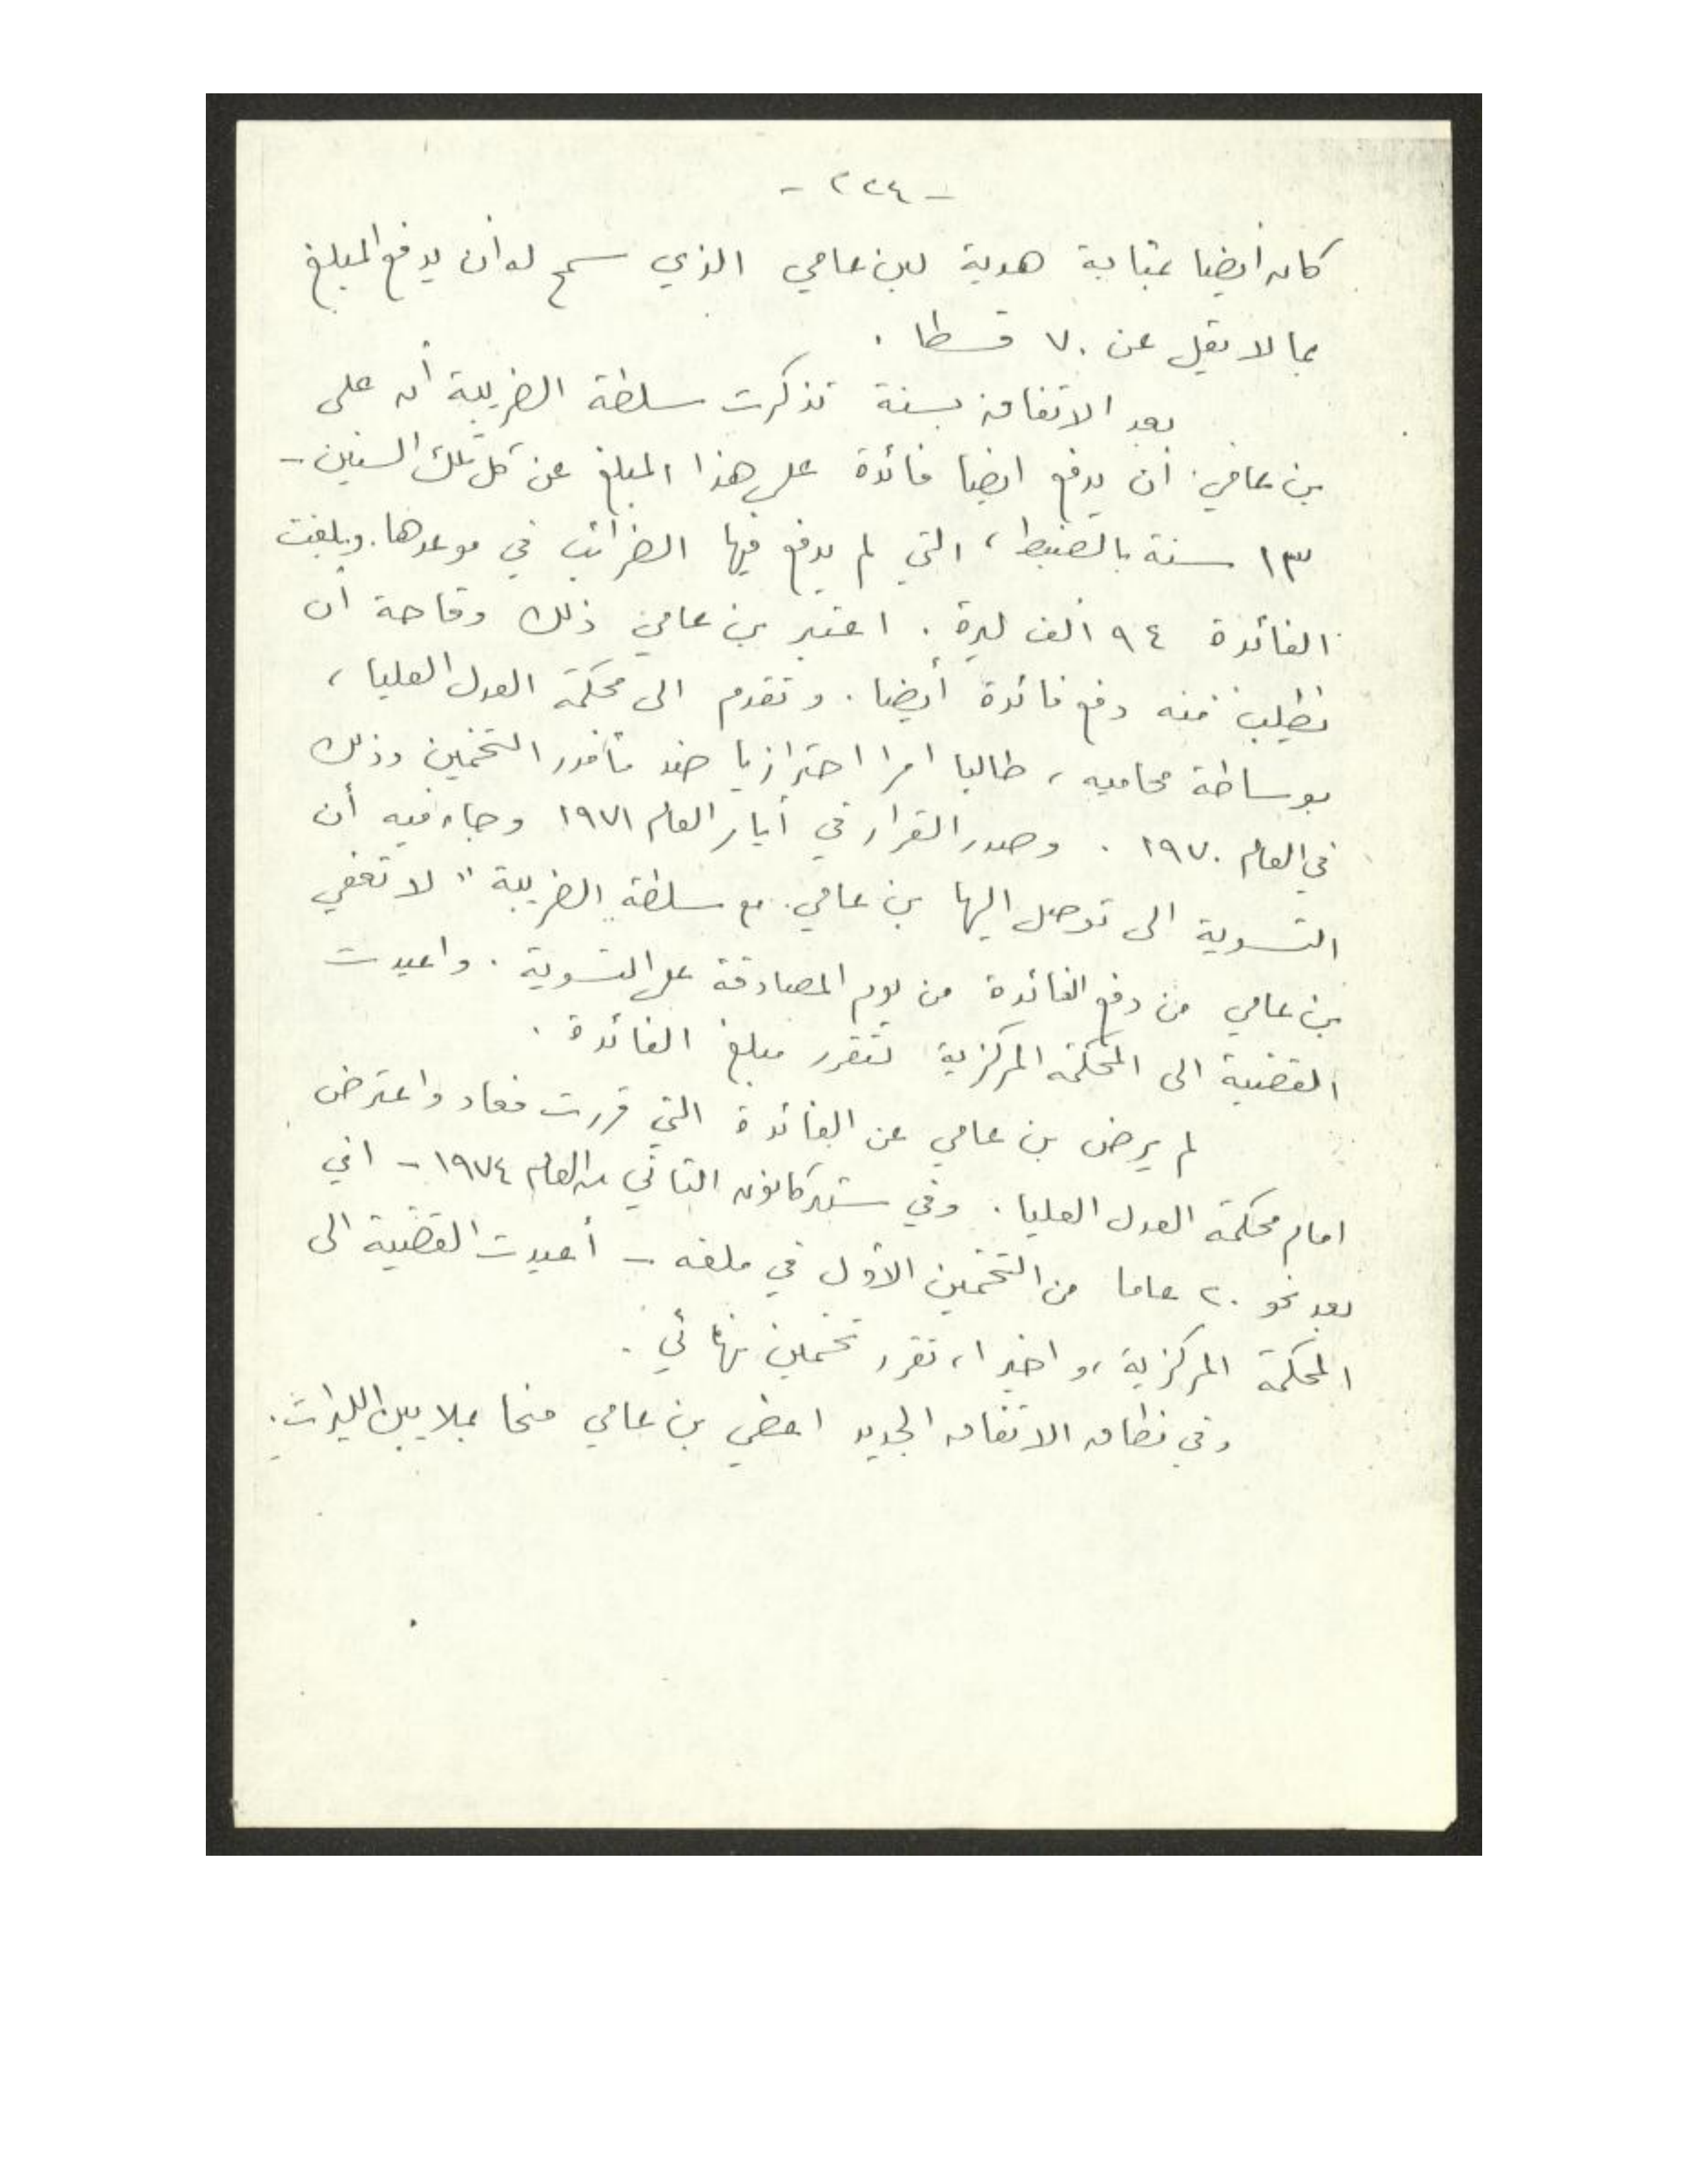 - ٢٢٤ -
كان أيضا بمثابة هدية لبن عامي الذي سمح له أن يدفع المبلغ
بما لا يقل عن ٧٠ قسطا .
بعد الاتفاق بسنة تذكرت سلطة الضريبة أن على
بن عامي أن يدفع ايضا فائدة على هذا المبلغ عن كل تلك السنين -
١٣ سنة بالضبط ، التي لم يدفع فيها الضرائب في موعدها. وبلغت
الفائدة ٩٤ الف ليرة . اعتبر بن عامي ذلك وقاحة أن
تطلب منه دفع فائدة أيضا . وتقدم الى محكمة العدل العليا ،
بوساطة محاميه ، طالبا امرا احترازيا ضد مأمور التخمين وذلك
في العام ١٩٧٠ . وصدر القرار في أيار العام ١٩٧١ وجاء فيه أن
التسوية الى توصل اليها بن عامي مع سلطة الضريبة " لا تعفي
بن عامي من دفع الفائدة من يوم المصادقة على التسوية . واعيدت
القضية الى المحكمة المركزية لتقرر مبلغ الفائدة .
لم يرض بن عامي عن الفائدة التي قررت فعاد واعترض
امام محكمة العدل العليا . وفي شهر كانون الثاني من العام ١٩٧٤ - اي
بعد نحو ٢٠ عاما من التخمين الأول في ملفه - أعيدت القضية الى
المحكمة المركزية ، واخيرا ، تقرر تخمين نهائي .
وفي نطاق الاتفاق الجديد اعفي بن عامي منحا بملايين الليرات .